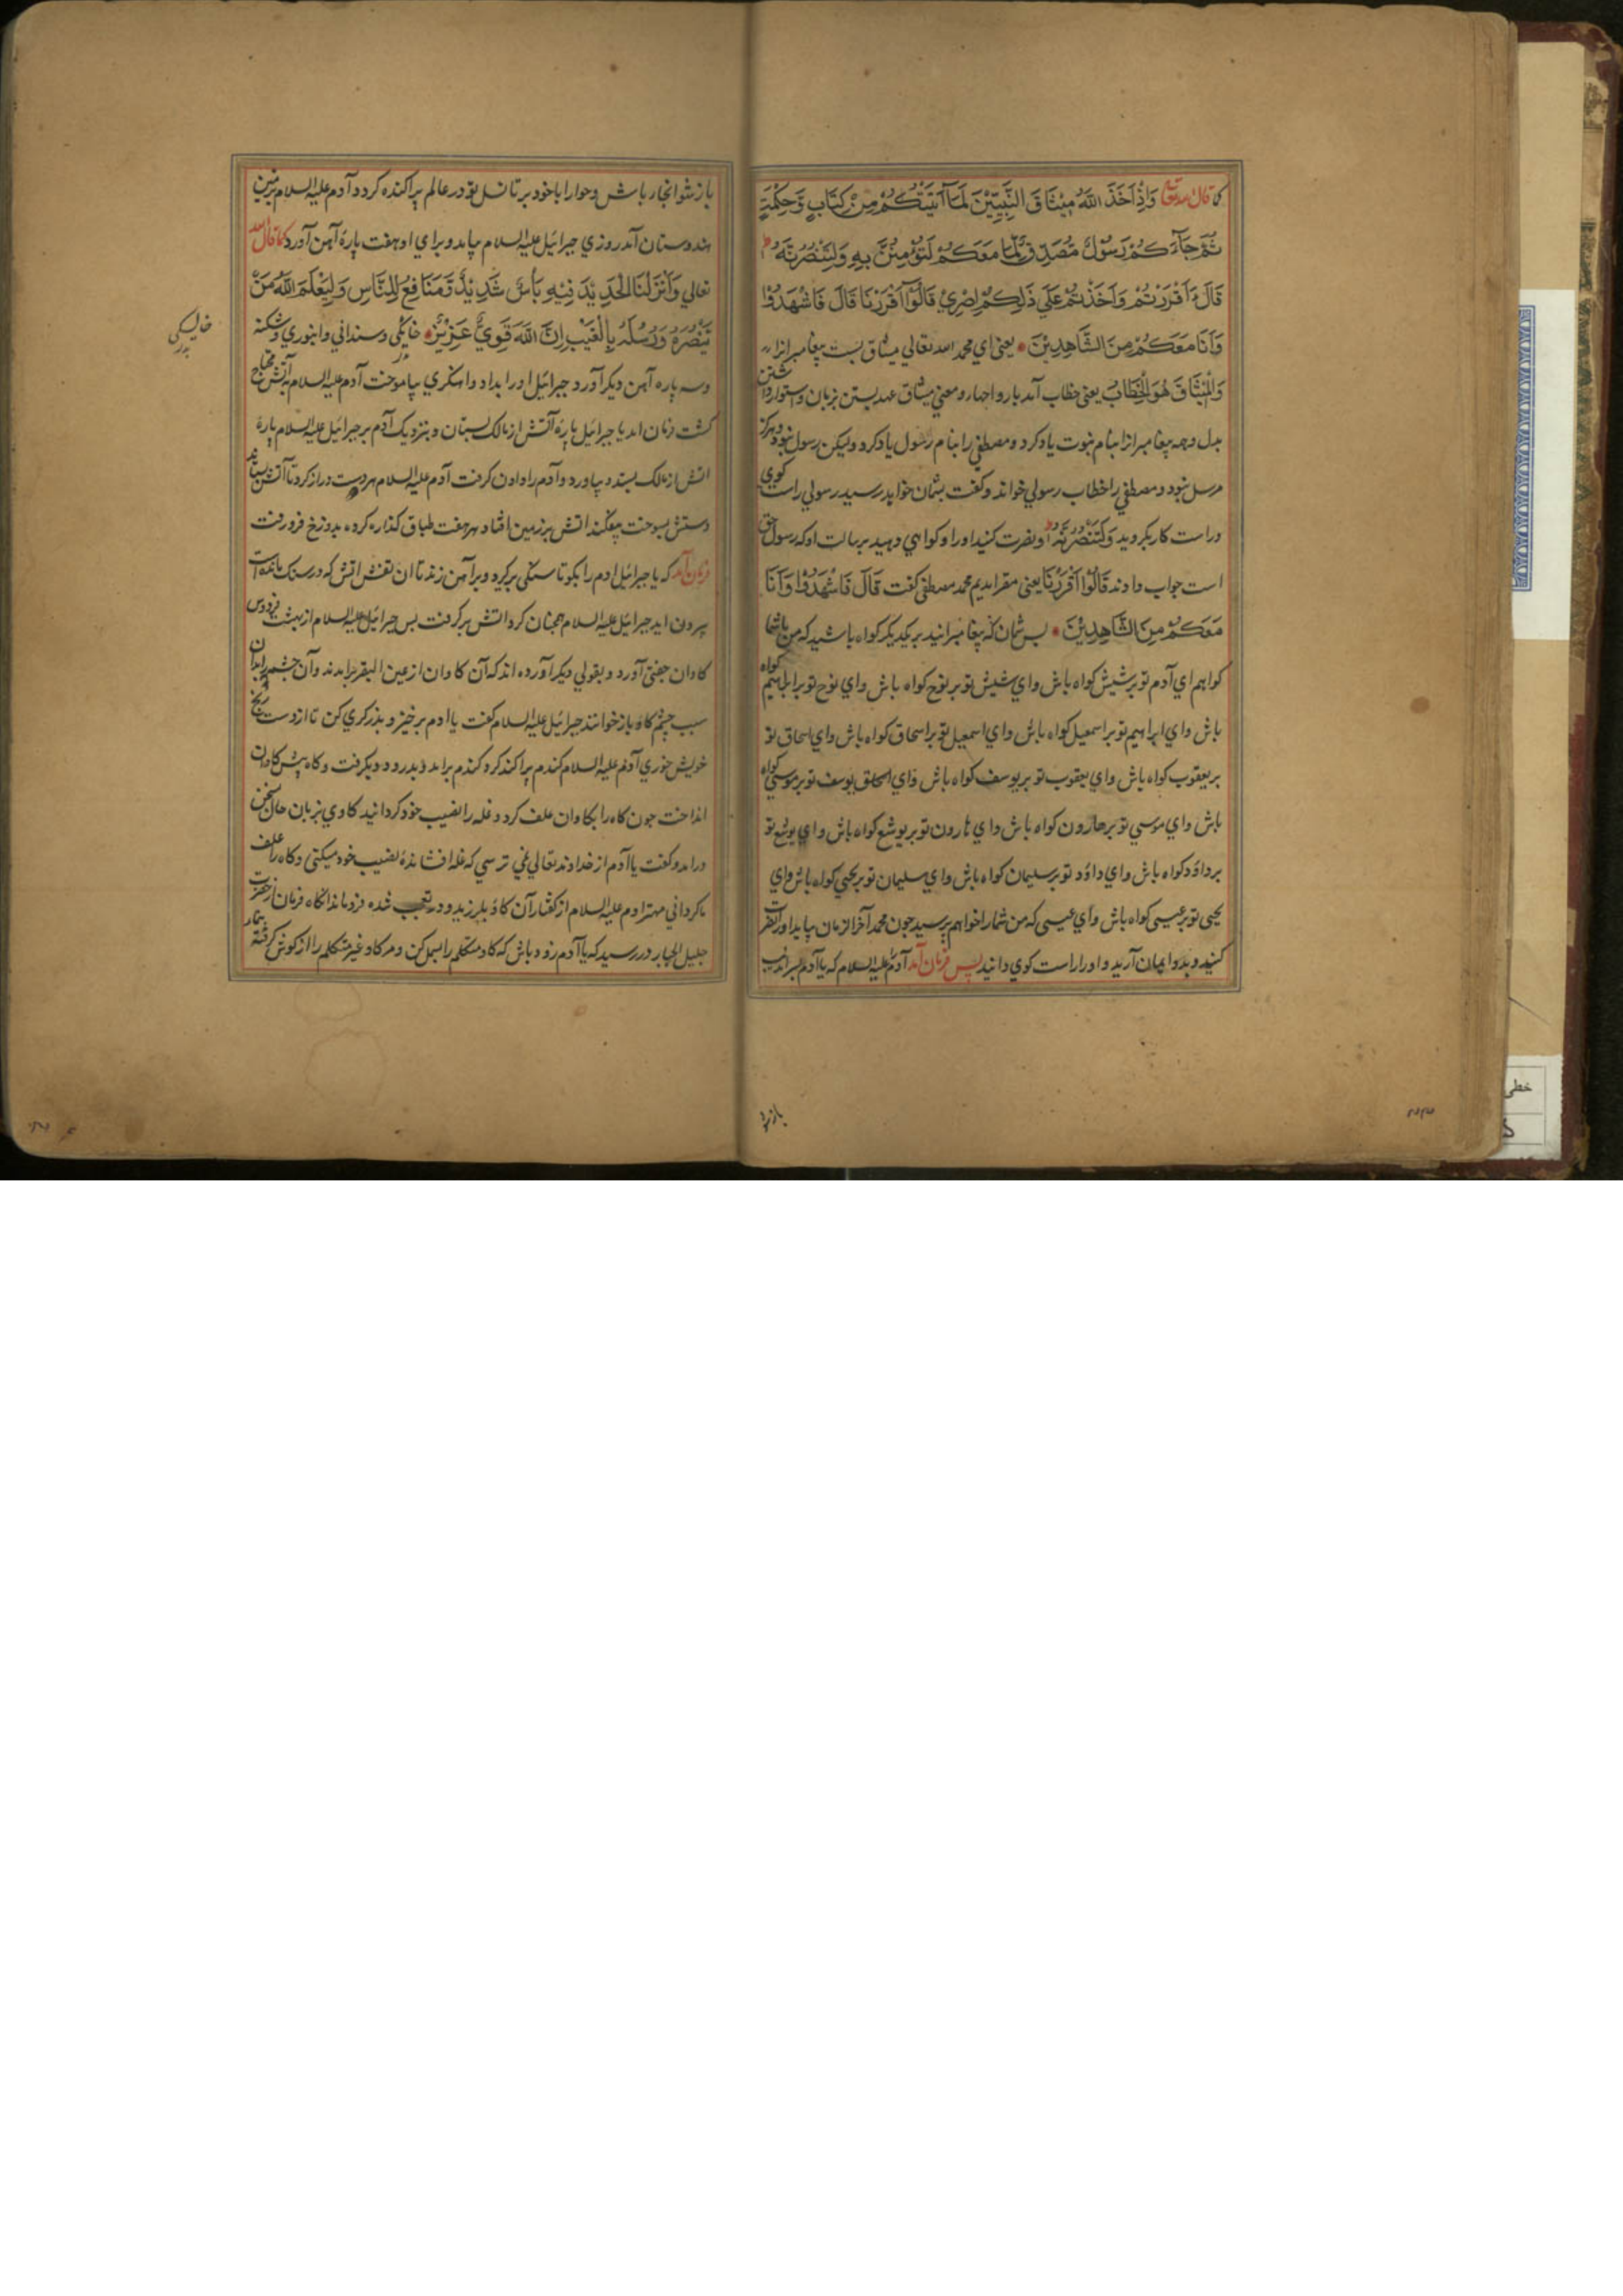 کما قال الله تعالی وَاِذْ اَخَذَ اللّٰهُ مِیْثَاقَ النَّبِیِّیْنَ لَمَآ اٰتَیْتُکُمْ مِنْ کِتَابٍ وَّحِکْمَةٍ
ثُمَّ جَآءَکُمْ رَسُوْلٌ مُّصَدِّقٌ لِّمَا مَعَکُمْ لَتُؤْمِنُنَّ بِهِ وَلَتَنْصُرُنَّهُ ط
قَالَ ءَاَقْرَرْتُمْ وَاَخَذْتُمْ عَلَی ذٰلِکُمْ اِصْرِیْ قَالُوْآ اَقْرَرْنَا قَالَ فَاشْهَدُوْا
وَاَنَا مَعَکُمْ مِنَ الشَّاهِدِیْنَ یعنی ای محمد الله تعالی میثاق بست پیغامبرانرا
وَالْمِیْثَاقَ هُوَ الْخِطَابُ یعنی خطاب آمد بارواحها و معنی میثاق عهد بستن بزبان و استوار داشتن
بدل و همه پیغامبرانرا بنام نبوت یاد کرد و مصطفی را بنام رسول یاد کرد ولیکن رسول نبود و هرکز
مرسل نبود و مصطفی را خطاب رسولی خواند و کفت بشمان خواهد رسید رسولی راست کوی
و راست کار بکروید وَلَتَنْصُرُنَّهُ او نصرت کنید او را و کواهی دهید برسالت او که رسول حق
است جواب دادند قَالُوْا اَقْرَرْنَا یعنی مقر امدیم محمد مصطفی کفت قَالَ فَاشْهَدُوْا وَاَنَا
مَعَکُمْ مِنَ الشَّاهِدِیْنَ پس شمان که پیغامبرانید بر یکدیکر کواه باشید که من باشما
کواهم ای آدم تو بر شیش کواه باش وای شیش تو بر نوح کواه باش وای نوح تو بر ابراهیم کواه
باش وای ابراهیم تو بر اسمعیل کواه باش وای اسمعیل تو بر اسحاق کواه باش وای اسحاق تو
بر یعقوب کواه باش وای یعقوب تو بر یوسف کواه باش وای یوسف تو بر موسی کواه
باش وای موسی تو بر هارون کواه باش وای هارون تو بر یوشع کواه باش وای یوشع تو
بر داؤد کواه باش وای داؤد تو بر سلیمان کواه باش وای سلیمان تو بر یحیی کواه باش وای
یحیی تو بر عیسی کواه باش وای عیسی که من شما را خواهم پرسید چون محمد آخر الزمان بیاید او را نصرت
کنید و بدو ایمان آرید و او را راست کوی دانید پس فرمان آمد آدم علیه السلام که یا آدم بسراندیب
باز شو
باز شو انجا باش و حوا را با خود بر تا نسل تو در عالم پراکنده کردد آدم علیه السلام بزمین
هندوستان آمد روزی جبرائیل علیه السلام بیامد و برای او هفت پارهٔ آهن آورد کما قال الله
تعالی وَاَنْزَلْنَا الْحَدِیْدَ فِیْهِ بَأْسٌ شَدِیْدٌ وَّمَنَافِعُ لِلنَّاسِ وَلِیَعْلَمَ اللّٰهُ مَنْ
یَّنْصُرُهُ وَرُسُلَهُ بِالْغَیْبِ اِنَّ اللّٰهَ قَوِیٌّ عَزِیْزٌ خایکی و سندانی و انبوری و شکنه
وسه پاره آهن دیکر آورد جبرائیل او را بداد و اهنکری بیاموخت آدم علیه السلام به آتش محتاج
کشت فرمان امد یا جبرائیل پارهٔ آتش از مالک بستان و بنزدیک آدم بر جبرائیل علیه السلام پارهٔ
اتش از مالک بستد و بیاورد و آدم را دادن کرفت آدم علیه السلام هر دو دست دراز کرد تا آتش بستاند
دستش بسوخت بیفکند اتش بر زمین افتاد و بر هفت طباق کذاره کرده بدوزخ فرو رفت
فرمان آمد که یا جبرائیل ادم را بکو تا سنکی برکیرد و برآهن زند تا ان نقش اتش که در سنک مانده است
بیرون اید جبرائیل علیه السلام همچنان کرد اتش بر کرفت پس جبرائیل علیه السلام از بهشت فردوس
کاوان جفتی آورد و بقولی دیکر آورده اند که آن کاوان از عین البقر برامدند وآن چشمه را بدان
سبب چشم کاو باز خوانند جبرائیل علیه السلام کفت یا ادم برخیز و بذرکری کن تا از دست رنج
خویش خوری آدم علیه السلام کندم پراکند کرد کندم برامد و بدرود و بکرفت و کاه پیش کاوان
انداخت چون کاه را بکاوان علف کرد و غله را نصیب خود کردانید کاوی بزبان حال سخن
درامد و کفت یا آدم از خداوند تعالی نمی ترسی که غله افشاندهٔ نصیب خود میکنی و کاه را علف
ما کردانی مهتر ادم علیه السلام از کفتار آن کاو بلرزید و در تعجب شده فرو ماند انکاه فرمان از حضرت
جلیل الجبار در رسید که یا آدم زود باش که کاو متکلم را بسمل کن و مر کاو غیر متکلم را از کوش کرفته
خایسکی